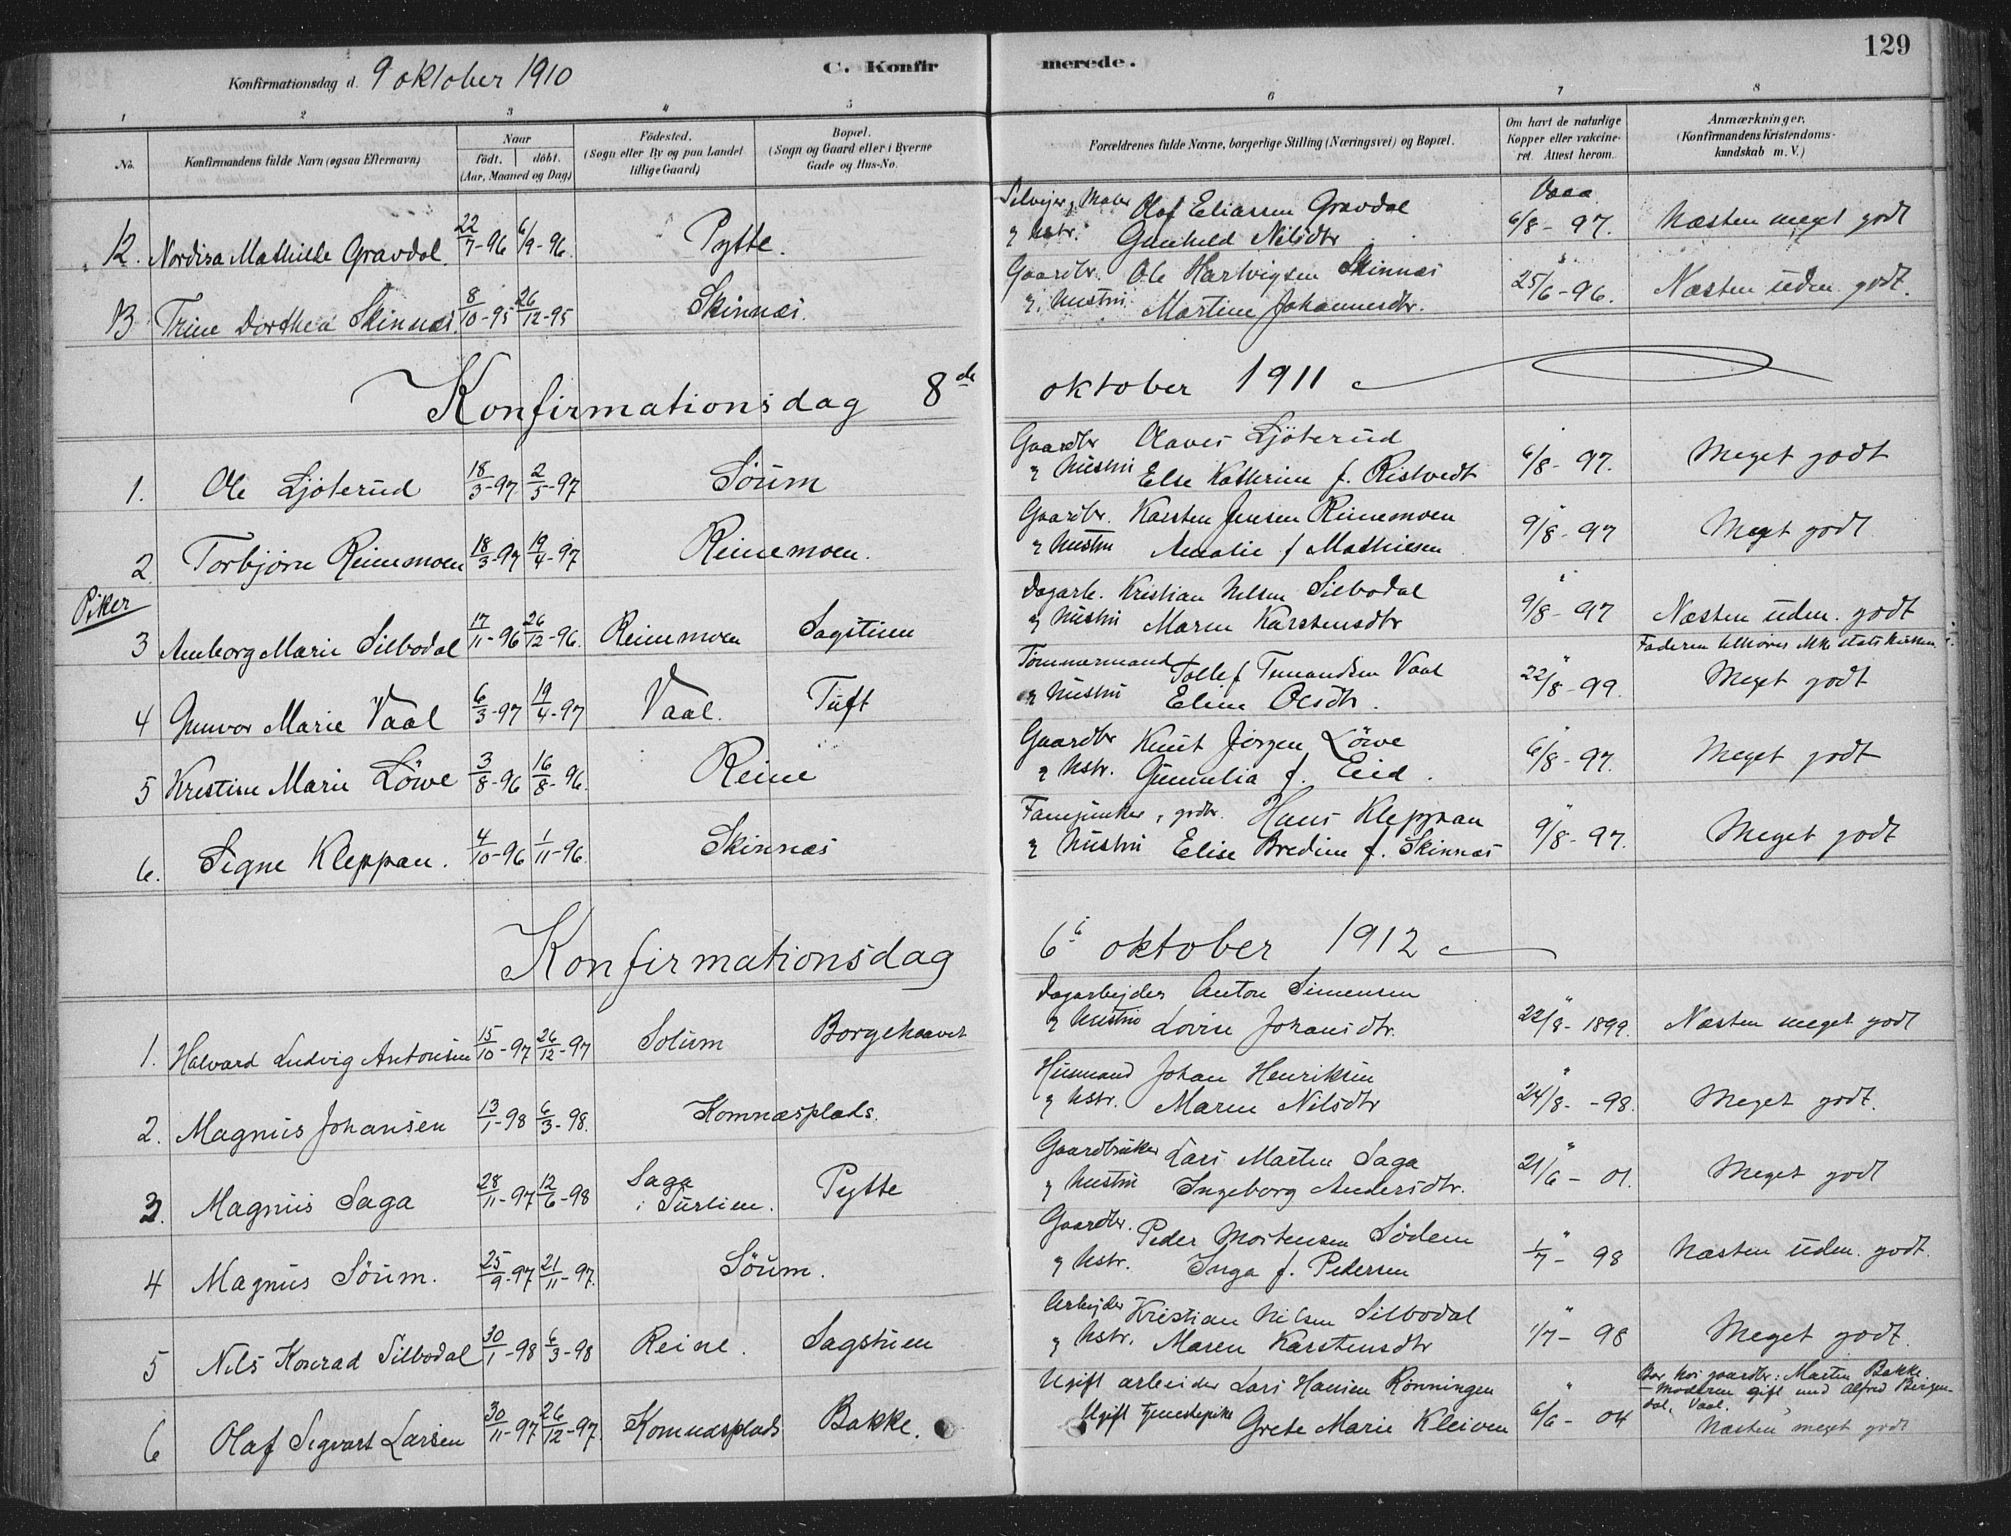 129
Konfirmationsdag d. 9 oktober 1910
C. Konfirmerede.
1 2 3 4 5 6 7 8
No.
Konfirmandens fulde Navn (ogsaa Efternavn)
Naar
födt. döbt.
(Aar, Maaned og Dag)
Födested.
(Sogn eller By og paa Landet
tillige Gaard)
Bopæl.
(Sogn og Gaard eller i Byerne
Gade og Hus-No.
Forældrenes fulde Navne, borgerlige Stilling (Næringsvei) og Bopæl.
Om havt de naturlige
Kopper eller vakcine-
ret. Attest herom.
Anmærkninger.
(Konfirmandens Kristendoms-
kundskab m. V.)
12. Nordisa Mathilde Gravdal 22/7-96 6/9-96. Pytte.
Selveier, Maler Olaf Eliassen Gravdal
& hstr. Gunhild Nilsdtr
Vaaa
6/8-97. Næsten meget godt
13 Trine Dorthea Skinnæs 8/10-95 26/12-95 Skinnæs.
Gaardbr. Ole Hartvigsen Skinnæs
& hustru Martine Johannesdtr.
" 25/6-96. Næsten uden. godt.
Konfirmationsdag 8de oktober 1911
1. Ole Ljöterud 18/3-97 2/5-97 Söum
Gaardbr Olaves Ljöterud
& hustru Else Kathrine f. Ristvedt
6/8-97. Meget godt
2 Torbjörn Reinemoen 18/3-97 19/4-97 Reinemoen.
Gaardbr. Karsten Jensen Reinemoen
& hustru Amalie f Mathiesen
" 9/8-97 Meget godt
Piker
3 Amborg Marie Silbodal 17/11-96 26/12-96. Reinemoen Sagstuen
Dagarb. Kristian Nilsen Silbodal
& hustru Maren Karstensdtr
" 9/8-97 Næsten uden. godt
Faderen tilhörer ikke statskirken
4 Gunvor Marie Vaal 6/3-97 19/4-97 Vaal. Tuft
Tömmermand Tollef Temandsen Vaal
& hustru Eline Olsdtr.
" 22/8-99. Meget godt
5 Kristine Marie Löwe 3/8-96 16/8-96. Reine
Gaardbr Knut Jörgen Löwe
& hstr. Gunnelia f. Eeid.
" 6/8-97. Meget godt
6. Signe Kleppan. 4/10-96 1/11-96. Skinnæs
Fanejunker, grdbr. Hans Kleppan
& hustru Elise Bredine f. Skinnæs
" 9/8-97. Meget godt
Konfirmationsdag 6te oktober 1912
1. Halvard Ludvig Antonsen 15/10-97 26/12-97 Solum Borgehaavet
Dagarbejder Anton Simensen
& hustru Lovise Johansdtr.
" 22/8-1899. Næsten meget godt
2. Magnus Johansen 13/1-98 6/3-98. Komnæsplads.
Husmand Johan Henriksen
& hstr. Maren Nilsdtr
" 24/8--98. Meget godt.
3. Magnus Saga 28/11-97 12/6-98 Saga
i Turlien. Pytte
Gaardbruker Lars Marten Saga
& hustru Ingeborg Andersdtr.
" 21/6-01. Meget godt
4 Magnus Söum. 25/9-97 21/11-97. Söum.
Gaardbr. Peder Mortensen Södem
& hstr. Inga f. Pedersen
" 1/7-98 Næsten uden. godt.
5 Nils Konrad Silbodal 30/1-98 6/3-98 Reine. Sagstuen
Arbejder Kristian Nilsen Silbodal
& hstr. Maren Karstensdtr
" 1/7-98 Meget godt.
6 Olaf Sigvart Larsen 30/11-97 26/12-97. Komnæsplads Bakke.
Ugift arbeider Lars Hansen Rönningen
Ugift tjenestepike Grete Marie Kleiven
" 6/6-04
Bor hos gaardbr: Martin Bakke.
- Moderen gift med Alfred Bergen-
dal, Vaal.
Næsten meget godt